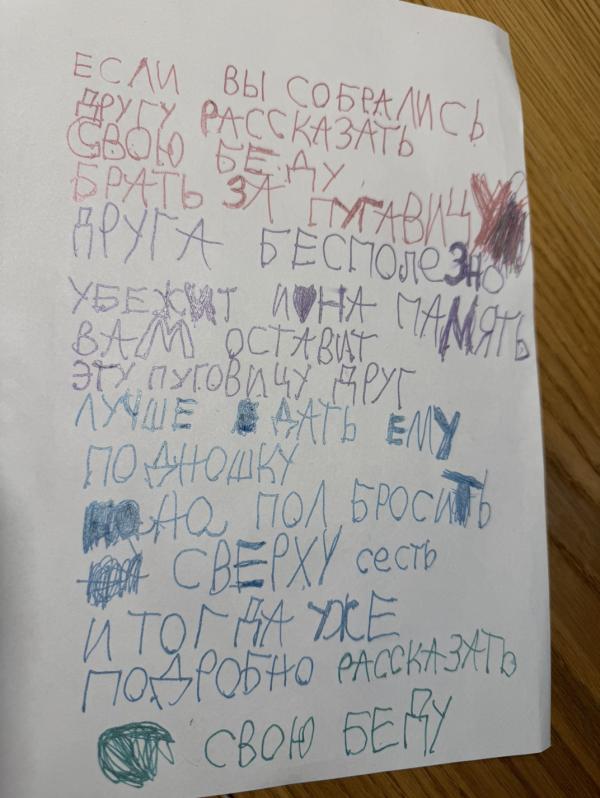 ЕСЛИ ВЫ СОБРАЛИСЬ
ДРУГУ РАССКАЗАТЬ
СВОЮ БЕДУ
БРАТЬ ЗА ПУГАВИЦУ
ДРУГА БЕСПОЛЕЗНО
УБЕЖИТ И НА ПАМЯТЬ
ВАМ ОСТАВИТ
ЭТУ ПУГОВИЦУ ДРУГ
ЛУЧШЕ ДАТЬ ЕМУ
ПОДНОШКУ
НА ПОЛ БРОСИТЬ
СВЕРХУ сесть
И ТОГДА УЖЕ
ПОДРОБНО РАССКАЗАТЬ
СВОЮ БЕДУ